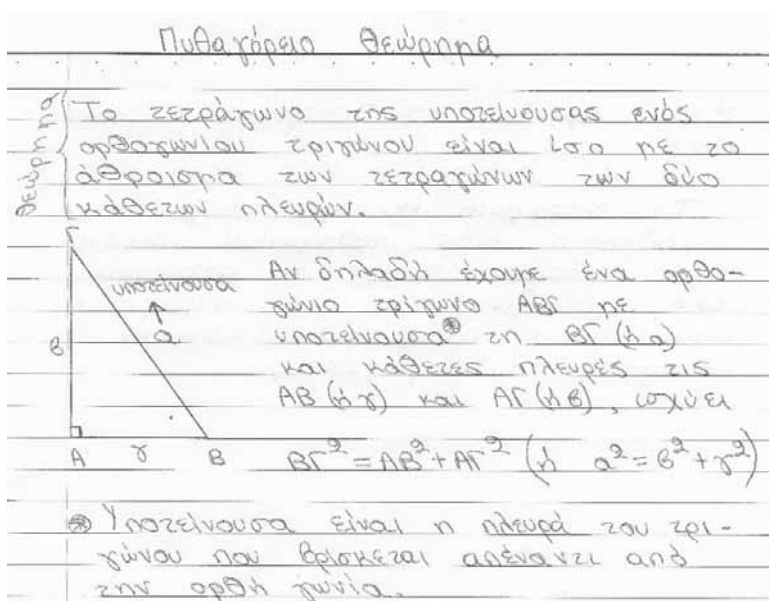 Πυθαγόρειο Θεώρημα
Θεώρημα
Το τετράγωνο της υποτείνουσας ενός
ορθογωνίου τριγώνου είναι ίσο με το
άθροισμα των τετραγώνων των δύο
κάθετων πλευρών.
Γ
υποτείνουσα
α
β
Α γ Β
Αν δηλαδή έχουμε ένα ορθο-
γώνιο τρίγωνο ΑΒΓ με
υποτείνουσα⊛ τη ΒΓ (ή α)
και κάθετες πλευρές τις
ΑΒ (ή γ) και ΑΓ (ή β), ισχύει
ΒΓ² = ΑΒ² + ΑΓ² (ή α² = β² + γ²)
⊛ Υποτείνουσα είναι η πλευρά του τρι-
γώνου που βρίσκεται απέναντι από
την ορθή γωνία.